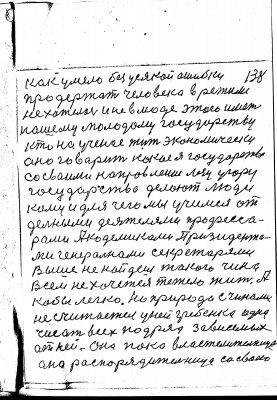 как умело без усякой ошибки 138
продержат человека в режиме
не хотелось и не в моде этого иметь
нашему молодому государству
кто на ученое жит экономически
оно говарит какое государство
со своими направление
государства делоют люди
кому и для чего мы учимся от
дельными деятелями профессо-
рами Академиками Призидента-
ми генералнами секретарями
Выше не найдеш такого чина
Всем не хочется тежело жит. А
кабы легко. Но природа с чинами
не считается у ней гребенка одна
чисат всех подряд зависемых
от ней. Она пока властелителница
она распорядителница со свою